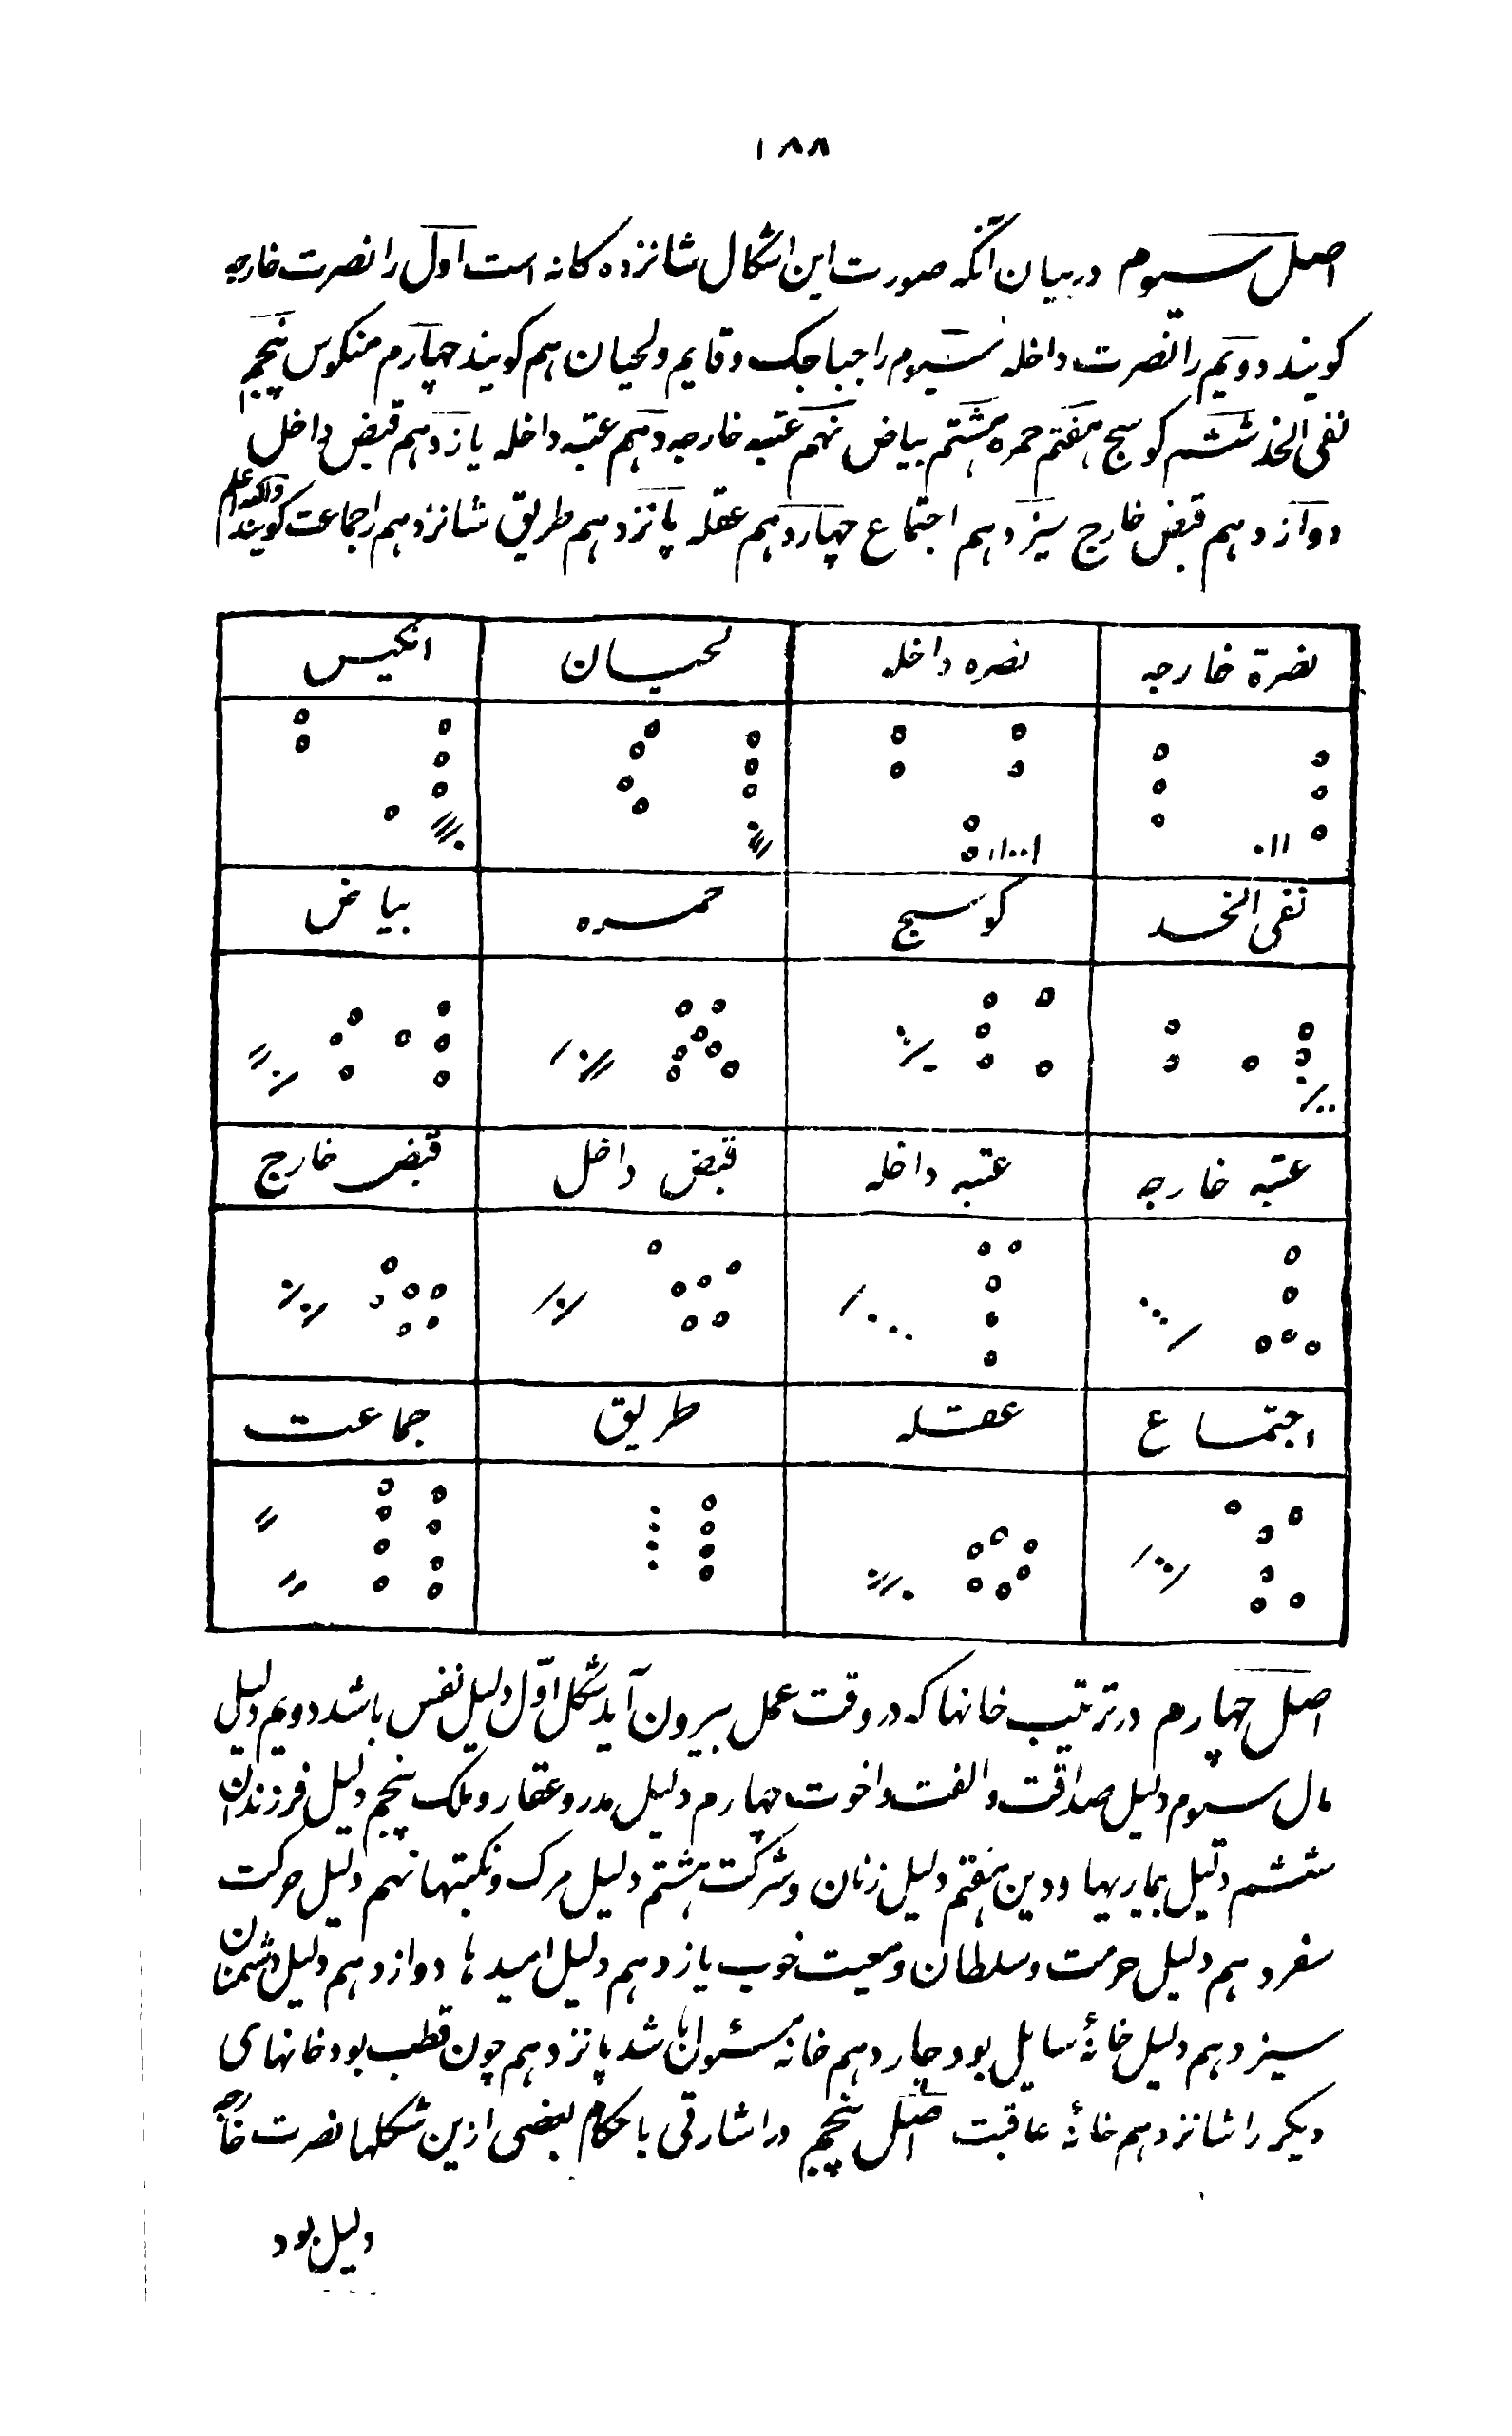 ۱۸۸
اصل سیوم در بیان آنکه صورت این اشکال شانزده کانه است اول را نصرت خارجه
کویند دویم را نصرت داخله سیوم را جباجک و قایم ولحیان هم کویند چهارم منکوس پنجم
نفی الخد ششم کوسج هفتم حمره هشتم بیاض نهم عتبه خارجه دهم عتبه داخله یازدهم قبض داخل
دوازدهم قبض خارج سیزدهم اجتماع چهاردهم عقله پانزدهم طریق شانزدهم را جماعت کویند والله اعلم
نصرة خارجه نصره داخله لحیان انکیس
نفی الخد کوسج حمره بیاض
عتبه خارجه عتبه داخله قبض داخل قبض خارج
اجتماع عقله طریق جماعت
اصل چهارم در ترتیب خانها که در وقت عمل بیرون آید شکل اوّل دلیل نفس باشد دویم دلیل
مال سیوم دلیل صداقت و الفت و اخوت چهارم دلیل پدر و عقار و ملک پنجم دلیل فرزندان
ششم دلیل بماریها و دین هفتم دلیل زنان و شرکت هشتم دلیل مرک و نکبتها نهم دلیل حرکت
سفر دهم دلیل حرمت و سلطان و معیت خوب یازدهم دلیل امیدها دوازدهم دلیل دشمنان
سیزدهم دلیل خانهٔ سایل بود چاردهم خانهٔ مسئول باشد پانزدهم چون قطب بود خانهای
دیکر را شانزدهم خانهٔ عاقبت اصل پنجم در اشارتی باحکام بعضی ازین شکلها نصرت خارجه
دلیل بود